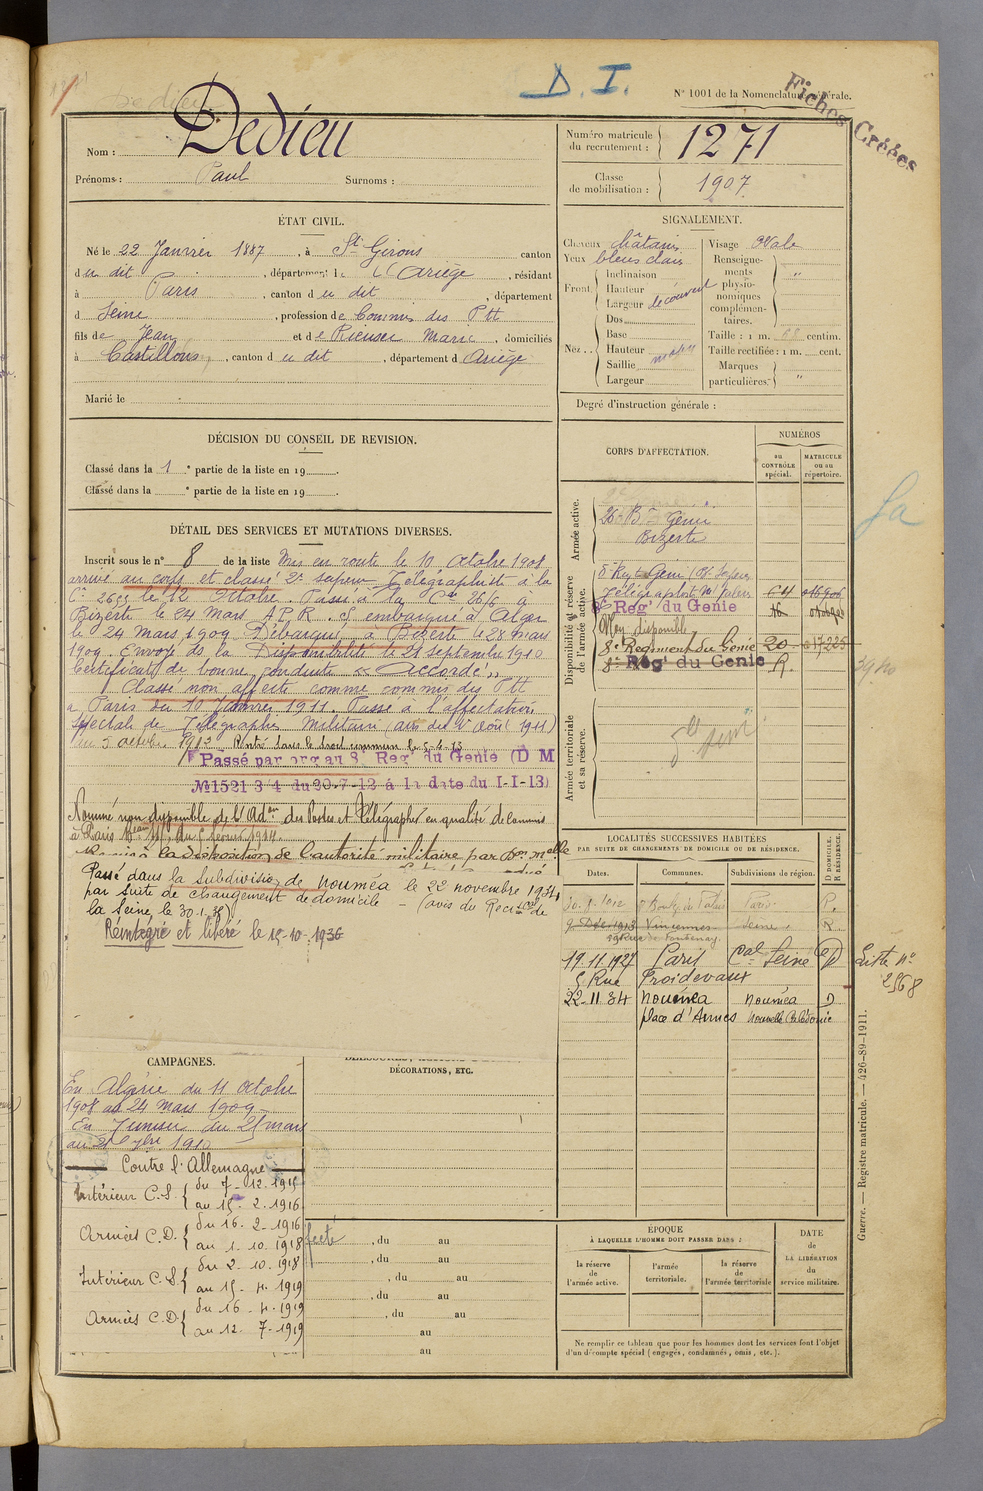 D. I.
N° 1001 de la Nomenclature générale.
Fiches Créées
Nom : Dedieu
Prénoms : Paul Surnoms :
Numéro matricule du recrutement : 1271
Classe de mobilisation : 1907
ÉTAT CIVIL.
Né le 22 Janvier 1887, à St Girons canton
du dit, département de l'Ariège, résidant
à Paris, canton du dit, département
d Seine, profession de Commis des Ptt
fils de Jean et de Rieuser Marie, domiciliés
à Castillons, canton du dit, département d Ariège
Marié le
SIGNALEMENT.
Cheveux châtain Visage Ovale
Yeux bleus clair
Front. Inclinaison
Hauteur
Largeur découvert
Nez.. Dos
Base
Hauteur moyen
Saillie
Largeur
Renseignements physionomiques complémentaires. "
Taille : 1 m. 68 centim.
Taille rectifiée : 1 m. cent.
Marques particulières. "
Degré d'instruction générale :
DÉCISION DU CONSEIL DE REVISION.
Classé dans la 1 e partie de la liste en 19
Classé dans la e partie de la liste en 19
CORPS D'AFFECTATION.
NUMÉROS
au CONTRÔLE spécial.
MATRICULE ou au répertoire.
Armée active.
26e Bn Génie
Bizerte
Disponibilité et réserve de l'armée active.
8e Reg' du Genie
64
16
Non disponible
8e Regiment du Génie 20 017225
8e Reg' du Genie R.
Armée territoriale et sa réserve.
DÉTAIL DES SERVICES ET MUTATIONS DIVERSES.
Inscrit sous le n° 8 de la liste Mis en route le 10 Octobre 1908
arrivé au corps et classé 2e sapeur Télégraphiste à la
Cie le 12 Octobre. Passé à la Cie 26/6 à
Bizerte le 24 Mars A.P.R. S' embarqué à Alger
le 24 Mars 1909. Débarqué à Bizerte le 28 Mars
1909. Envoyé ds la Disponibilité le 21 septembre 1910
Certificat de bonne conduite « Accordé »
Classé non affecté comme commis des Ptt
à Paris du 10 Janvier 1911. Passé à l'affectation
spéciale de Télégraphie Militaire (avis du 4 Août 1911)
au 3 octobre 1912 Rentré dans le droit commun le
Passé par org au 8e Reg' du Genie (D M
N°1521 3/4 du 20-7-12 à la date du 1-1-13)
Nommé non disponible de l'Adon des Postes et Télégraphes en qualité de Commis
à Paris
Remis à la disposition de l'autorité militaire par
Passé dans la subdivision de Nouméa le 22 novembre 1934
par suite de changement de domicile – (avis du Rect de
la Seine, le 30.1.35)
Réintégré et libéré le 15-10-1936
LOCALITÉS SUCCESSIVES HABITÉES
PAR SUITE DE CHANGEMENTS DE DOMICILE OU DE RÉSIDENCE.
Dates. Communes. Subdivisions de région. D DOMICILE. R RÉSIDENCE.
Paris R.
9 Déc 1913 Vincennes Seine R
Rue de Fontenay
19.11.1927 Paris Cal Seine D
5 Rue Froidevaux
Liste n° 2568
22-11-34 Nouméa Nouméa D
place d'Armes Nouvelle Calédonie
CAMPAGNES.
En Algérie du 11 Octobre
1908 au 24 Mars 1909
En Tunisie du 25 mars
au 21 7bre 1910
Contre l'Allemagne
Intérieur C.S. { du 7-12.1915
au 15-2.1916
Armées C.D. { du 16.2-1916
au 1.10.1918
Intérieur C.S. { du 2-10.1918
au 15-4.1919
Armées C.D. { du 16-4-1919
au 12.7-1919
DÉCORATIONS, ETC.
, du au
, du au
, du au
, du au
, du au
au
au
ÉPOQUE
À LAQUELLE L'HOMME DOIT PASSER DANS :
la réserve de l'armée active.
l'armée territoriale.
la réserve de l'armée territoriale
DATE de LA LIBÉRATION du service militaire.
Ne remplir ce tableau que pour les hommes dont les services font l'objet
d'un décompte spécial (engagés, condamnés, omis, etc.).
Guerre. — Registre matricule. — 426-89-1911.